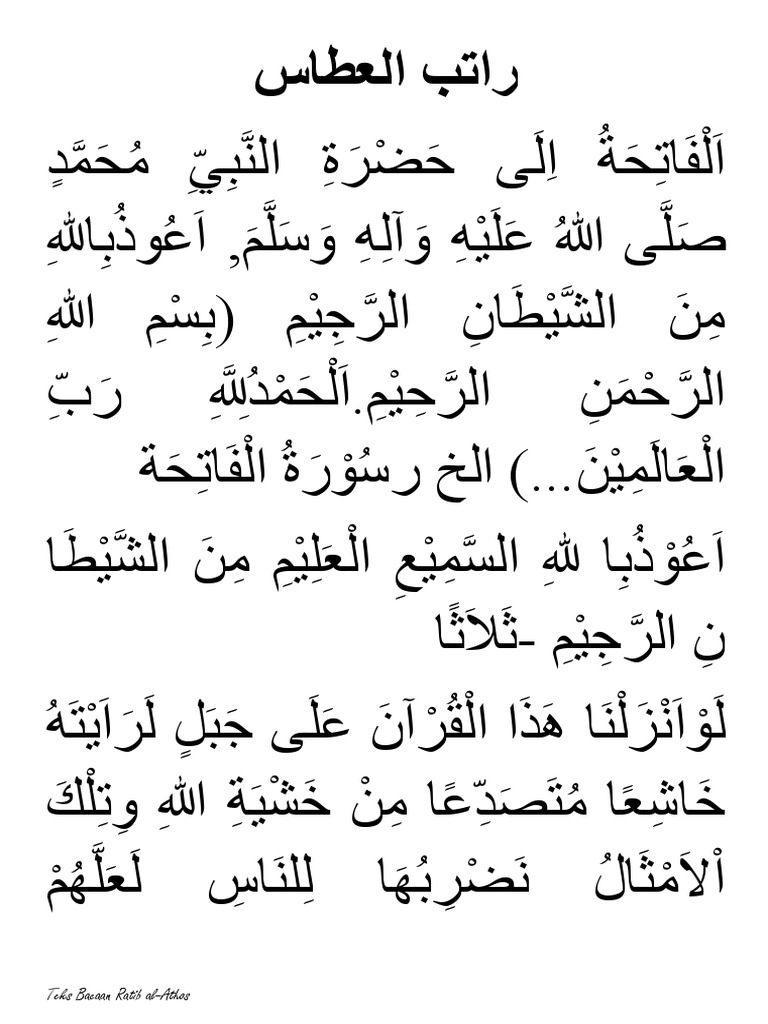 راتب العطاس
اَلْفَاتِحَةُ اِلَى حَضْرَةِ النَّبِيِّ مُحَمَّدٍ
صَلَّى اللهُ عَلَيْهِ وَآلِهِ وَسَلَّمَ, اَعُوذُبِاللهِ
مِنَ الشَّيْطَانِ الرَّجِيْمِ (بِسْمِ اللهِ
الرَّحْمَنِ الرَّحِيْمِ.اَلْحَمْدُلِلَّهِ رَبِّ
الْعَالَمِيْنَ...) الخ رسُوْرَةُ الْفَاتِحَة
اَعُوْذُبِا للهِ السَّمِيْعِ الْعَلِيْمِ مِنَ الشَّيْطَا
نِ الرَّجِيْمِ -ثَلاَثًا
لَوْاَنْزَلْنَا هَذَا الْقُرْآنَ عَلَى جَبَلٍ لَرَاَيْتَهُ
خَاشِعًا مُتَصَدِّعًا مِنْ خَشْيَةِ اللهِ وِتِلْكَ
اْلاَمْثَالُ نَضْرِبُهَا لِلنَاسِ لَعَلَّهُمْ
Teks Bacaan Ratib al-Athos